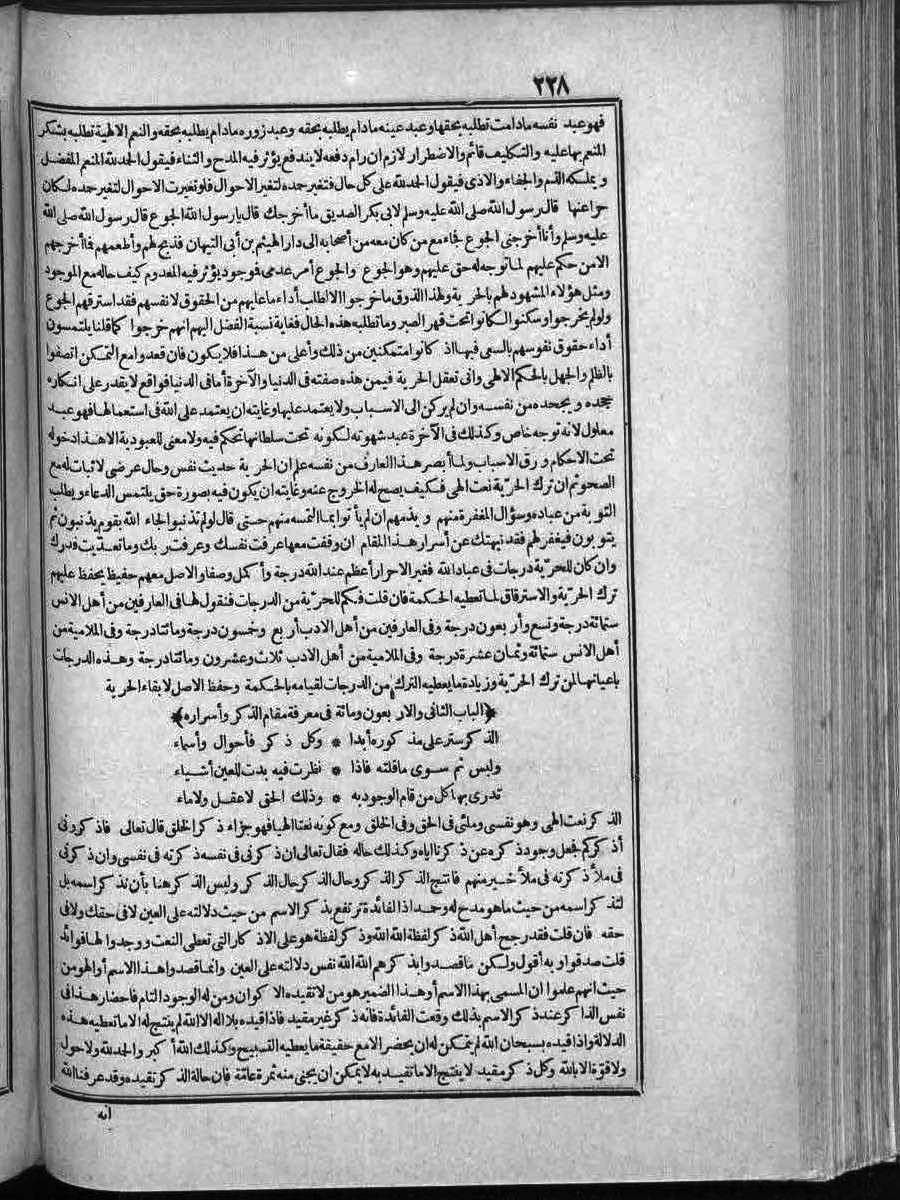 ٢٢٨
فهو عبد نفسه مادامت تطلبه بحقها وعبد عينه مادام يطلبه بحقه وعبد زوره مادام يطلبه بحقه والنعم الالهية تطلبه بشكر
المنعم بها عليه والتكليف قائم والاضطرار لازم ان رام دفعه لا يندفع يؤثر فيه المدح والثناء فيقول الحمد لله المنعم المفضل
ويملكه الذم والجفاء والاذى فيقول الحمد لله على كل حال فتغير حمده لتغير الاحوال فلو تغيرت الاحوال لتغير حمده لكان
حرا عنها قال رسول الله صلى الله عليه وسلم لابى بكر الصديق ما أخرجك قال يا رسول الله الجوع قال رسول الله صلى الله
عليه وسلم وأنا أخرجنى الجوع فجاء مع من كان معه من أصحابه الى دار الهيثم بن أبى التيهان فذبح لهم وأطعمهم فما أخرجهم
الا من حكم عليهم لما توجه له حق عليهم وهو الجوع والجوع أمر عدمى فوجود يؤثر فيه المعدوم كيف حاله مع الموجود
ومثل هؤلاء المشهود لهم بالحرية ولهذا الذوق ما خرجوا الا لطلب أداء ما عليهم من الحقوق لانفسهم فقد استرقهم الجوع
ولو لم يخرجوا وسكنوا لكانوا تحت قهر الصبر وما تطلبه هذه الحال فغاية نسبة الفضل اليهم انهم خرجوا كما قلنا يلتمسون
أداء حقوق نفوسهم بالسعى فيها اذ كانوا متمكنين من ذلك وأعلى من هذا فلا يكون فان قعدوا مع التمكن اتصفوا
بالظلم والجهل بالحكم الالهى وانى تعقل الحرية فيمن هذه صفته فى الدنيا والآخرة أما فى الدنيا فواقع لا يقدر على انكاره
جحده ويجحده من نفسه وان لم يركن الى الاسباب ولا يعتمد عليها وغايته ان يعتمد على الله فى استعمالها فهو عبد
معلول لانه توجه خاص وكذلك فى الآخرة عبد شهوته لكونه تحت سلطانها تحكم فيه ولا معنى للعبودية الا هذا دخوله
تحت الاحكام ورق الاسباب ولما أبصر هذا العارف من نفسه علم ان الحرية حديث نفس وحال عرضى لا ثبات له مع
الصحو ثم ان ترك الحرية نعت الهى فكيف يصح له الخروج عنه وغايته ان يكون فيه بصورة حق يلتمس الدعاء ويطلب
التوبة من عباده وسؤال المغفرة منهم ويذمهم ان لم يأتوا بما التمسه منهم حتى قال لو لم تذنبوا لجاء الله بقوم يذنبون ثم
يتوبون فيغفر لهم فقد نبهتك عن أسرار هذا المقام ان وقفت معها عرفت نفسك وعرفت ربك وما تعديت قدرك
وان كان للحرية درجات فى عباد الله فغير الاحرار أعظم عند الله درجة وأكمل وصفا والاصل معهم حفيظ يحفظ عليهم
ترك الحرية والاسترقاق لما تعطيه الحكمة فان قلت فكم للحرية من الدرجات فنقول لها فى العارفين من أهل الانس
ستمائة درجة وتسع وأربعون درجة وفى العارفين من أهل الادب أربع وخمسون درجة ومائتا درجة وفى الملامية من
أهل الانس ستمائة وثمان عشرة درجة وفى الملامية من أهل الادب ثلاث وعشرون ومائتا درجة وهذه الدرجات
باعيانها لمن ترك الحرية وزيادة ما يعطيه الترك من الدرجات لقيامه بالحكمة وحفظ الاصل لابقاء الحرية
﴿الباب الثانى والاربعون ومائة فى معرفة مقام الذكر وأسراره﴾
الذكر ستر على مذكوره أبدا * وكل ذكر فأحوال وأسماء
وليس ثم سوى ما قلته فاذا * نظرت فيه بدت للعين أشياء
تدرى بها كل من قام الوجود به * وذلك الحق لا عقل ولا ماء
الذكر نعت الهى وهو نفسى وملئى فى الحق وفى الخلق ومع كونه نعتا الهيا فهو جزاء ذكر الخلق قال تعالى فاذكرونى
أذكركم فجعل وجود ذكره عن ذكرنا اياه وكذلك حاله فقال تعالى ان ذكرنى فى نفسه ذكرته فى نفسى وان ذكرنى
فى ملأ ذكرته فى ملأ خير منهم فانتج الذكر الذكر وحال الذكر حال الذكر وليس الذكر هنا بأن تذكر اسمه بل
لتذكر اسمه من حيث ما هو مدح له وحمد اذ الفائدة ترتفع بذكر الاسم من حيث دلالته على العين لا فى حقك ولا فى
حقه فان قلت فقد رجح أهل الله ذكر لفظة الله الله وذكر لفظة هو على الاذكار التى تعطى النعت ووجدوا لها فوائد
قلت صدقوا وبه أقول ولكن ما قصدوا بذكرهم الله الله نفس دلالته على العين وانما قصدوا هذا الاسم أو الهو من
حيث انهم علموا ان المسمى بهذا الاسم أو هذا الضمير هو من لا تقيده الاكوان ومن له الوجود التام فاحضار هذا فى
نفس الذاكر عند ذكر الاسم بذلك وقعت الفائدة فانه ذكر غير مقيد فاذا قيده بلا اله الا الله لم ينتج له الا ما تعطيه هذه
الدلالة واذا قيده بسبحان الله لم يتمكن له ان يحضر الا مع حقيقة ما يعطيه التسبيح وكذلك الله أكبر والحمد لله ولا حول
ولا قوة الا بالله وكل ذكر مقيد لا ينتج الا ما تقيد به لا يمكن أن يجنى منه ثمرة عامة فان حالة الذكر تقيده وقد عرفنا الله
انه